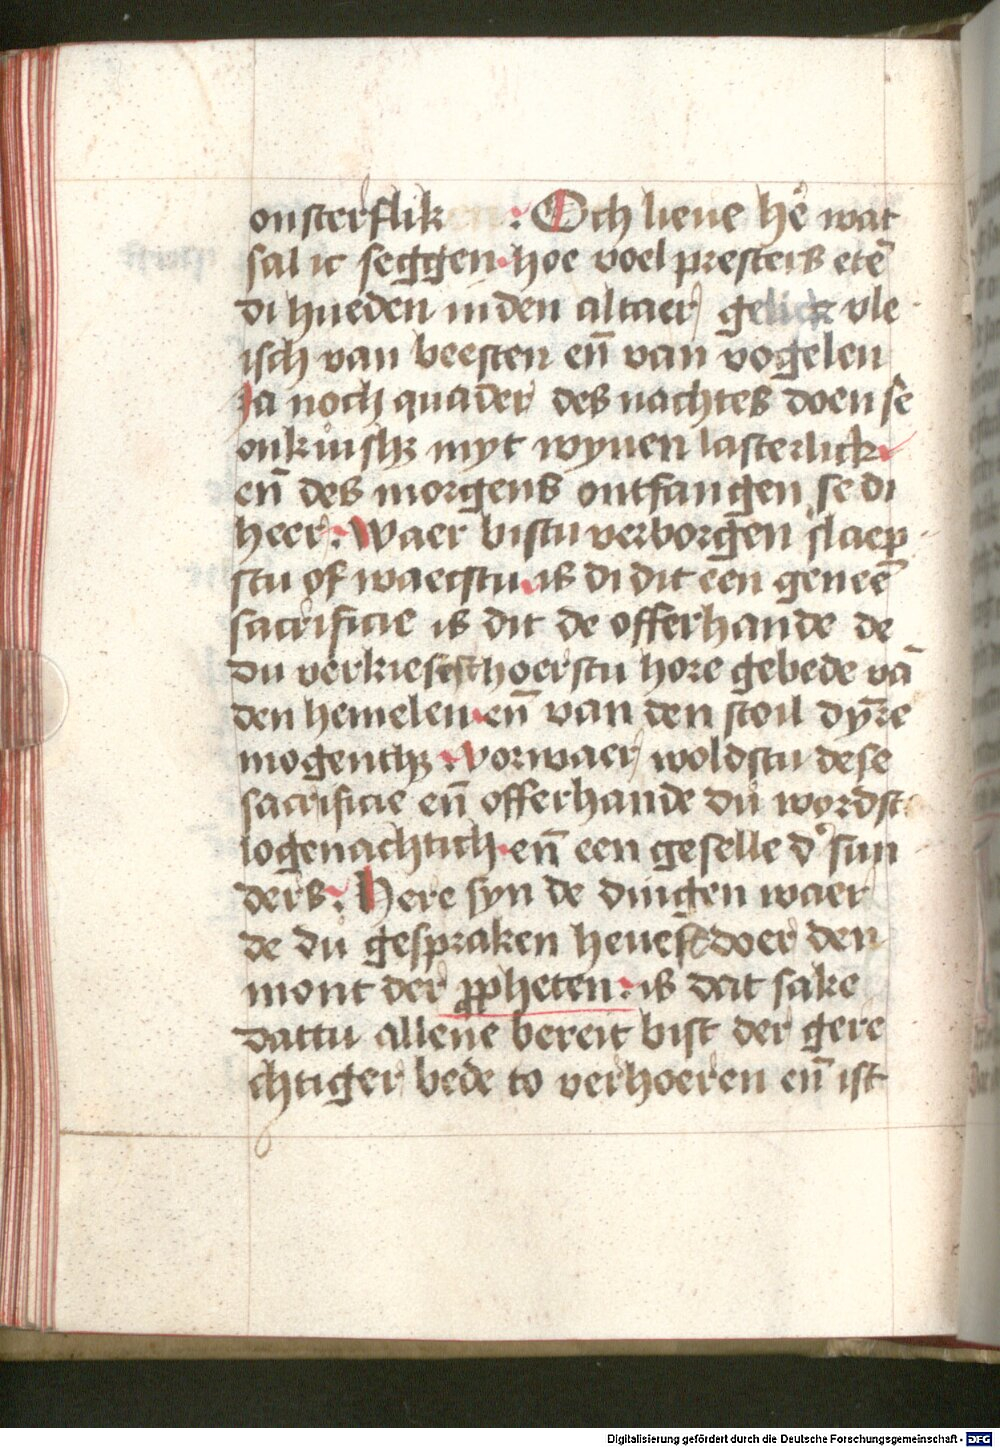 onsterflik : Och lieue hē wat
sal ic seggen · hoe voel presters etē
di hueden in den altaer gelick vle
isch van beesten en̄ van vogelen
Ja noch quader des nachtes doen se
onkuisħ myt wyuen lasterlick
en̄ des morgens ontfangen se di
heer : Waer bistu verborgen slaep
stu of waecstu · is di dit een geneē
sacrificie is dit de offerhande de
du verkiesest hoerstu hore gebede vā
den hemelen · en̄ van den stoil dyre
mogenth · vorwaer woldstu dese
sacrificie en̄ offerhande du wordst
logenachtich · en̄ een geselle d' sun
ders : Here syn de dingen waer
de du gespraken heuest doer den
mont der ꝓpheten : is dat sake
dattu allene bereit bist der gere
chtiger bede to verhoeren en̄ ist
Digitalisierung gefördert durch die Deutsche Forschungsgemeinschaft - DFG